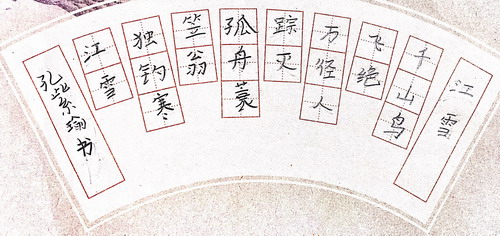 江雪
千山鸟
飞绝
万径人
踪灭
孤舟蓑
笠翁
独钓寒
江雪
孔紫瑜书